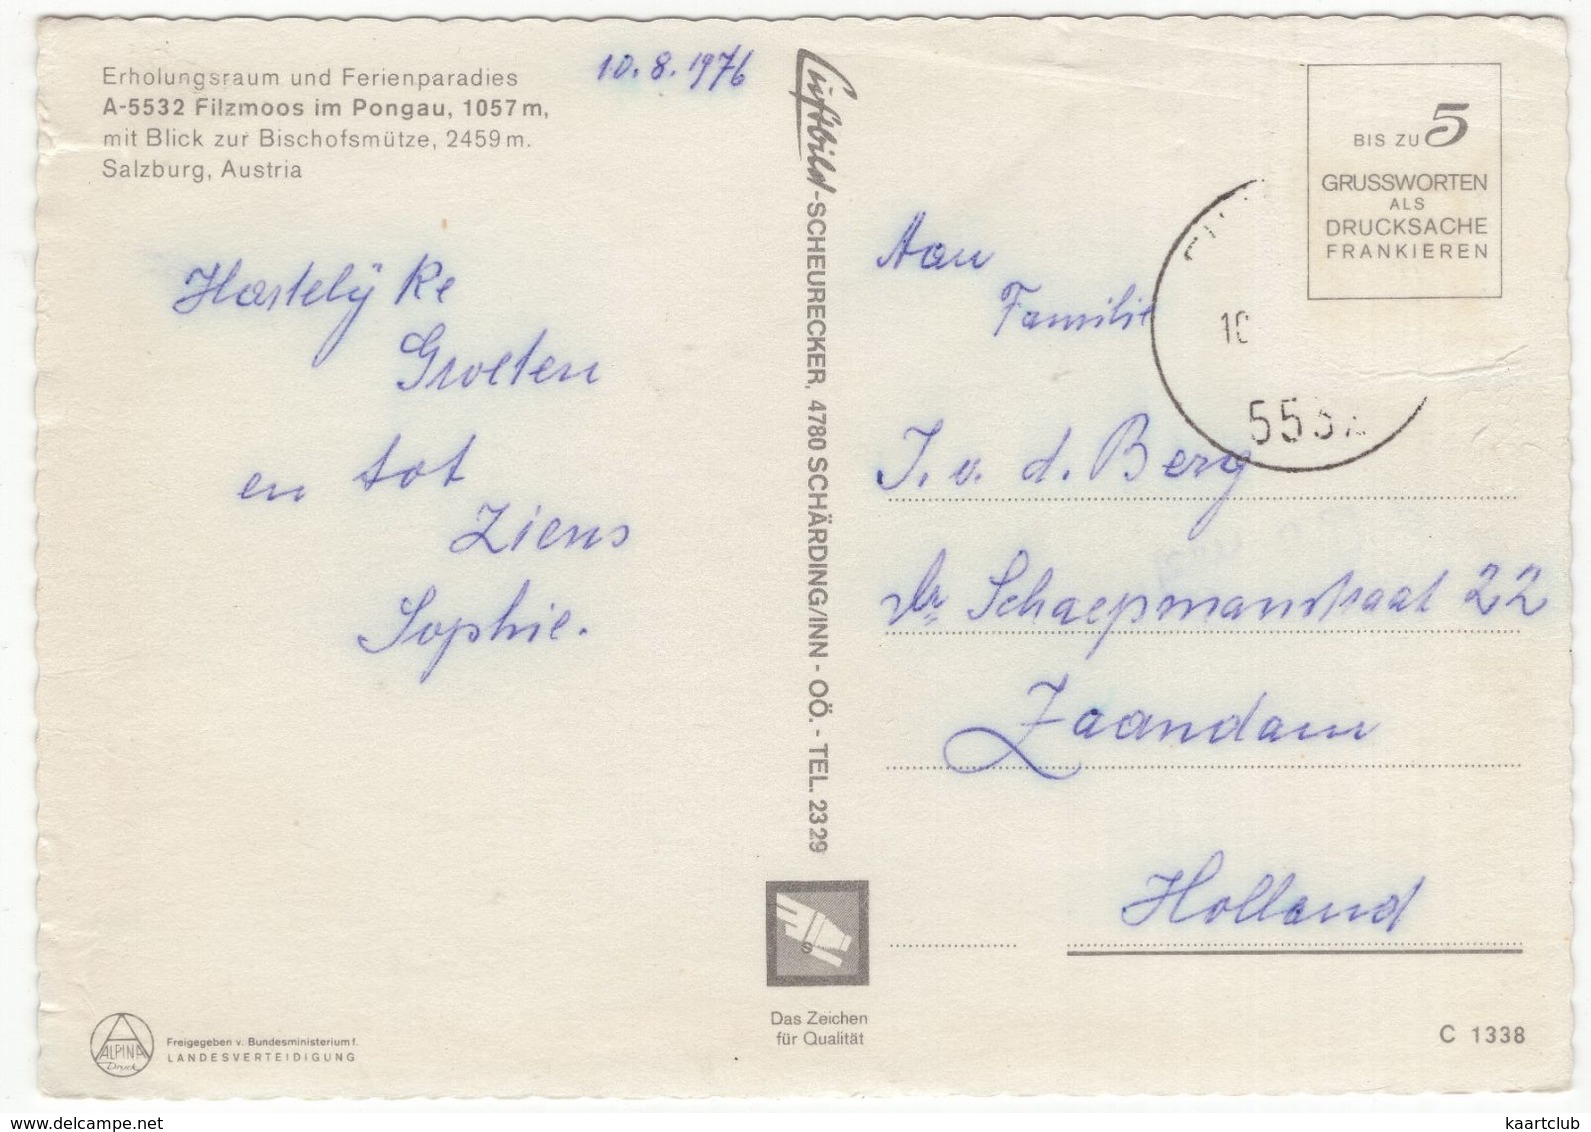 Erholungsraum und Ferienparadies
A-5532 Filzmoos im Pongau, 1057 m,
mit Blick zur Bischofsmütze, 2459 m.
Salzburg, Austria
10.8.1976
Hartelÿke
Groeten
en tot
Ziens
Sophie.
Luftbild-SCHEURECKER, 4780 SCHÄRDING/INN - OÖ. - TEL. 23 29
Das Zeichen
für Qualität
BIS ZU 5
GRUSSWORTEN
ALS
DRUCKSACHE
FRANKIEREN
10
Aan
Familie
J. v. d. Berg
Dr Schaepmanstraat 22
Zaandam
Holland
ALPINA
Druck
Freigegeben v. Bundesministerium f.
LANDESVERTEIDIGUNG
C 1338
www.delcampe.net
kaartclub